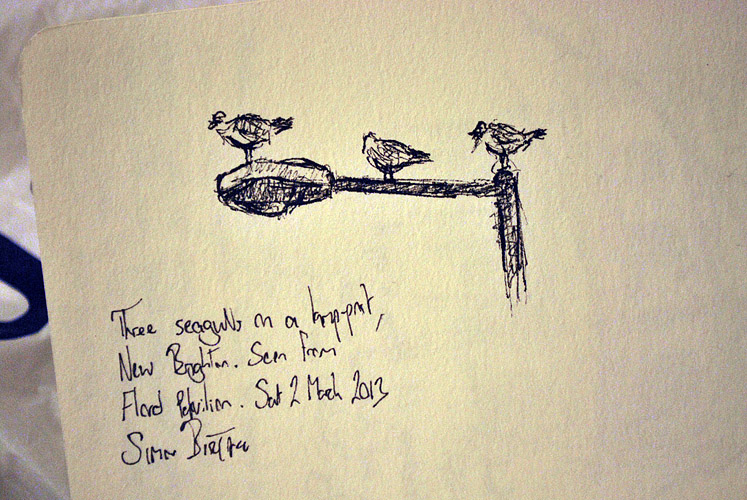 Three seagulls on a lamp-post,
New Brighton. Seen from
Floral Pavilion. Sat 2 March 2013
Simon